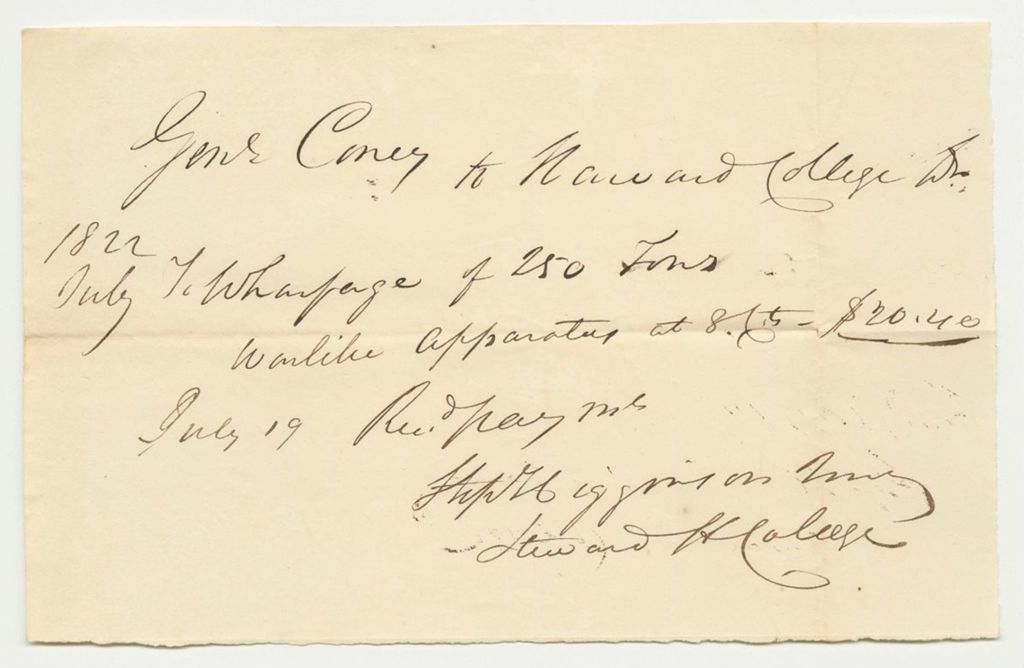 Genl Coney to Harvard College Dr.
1822
July To Wharfage of 250 Tons
Warlike apparatus at 8. Cts - $20.40
July 19 Recd. payment
Stepn. Higginson
Steward H College